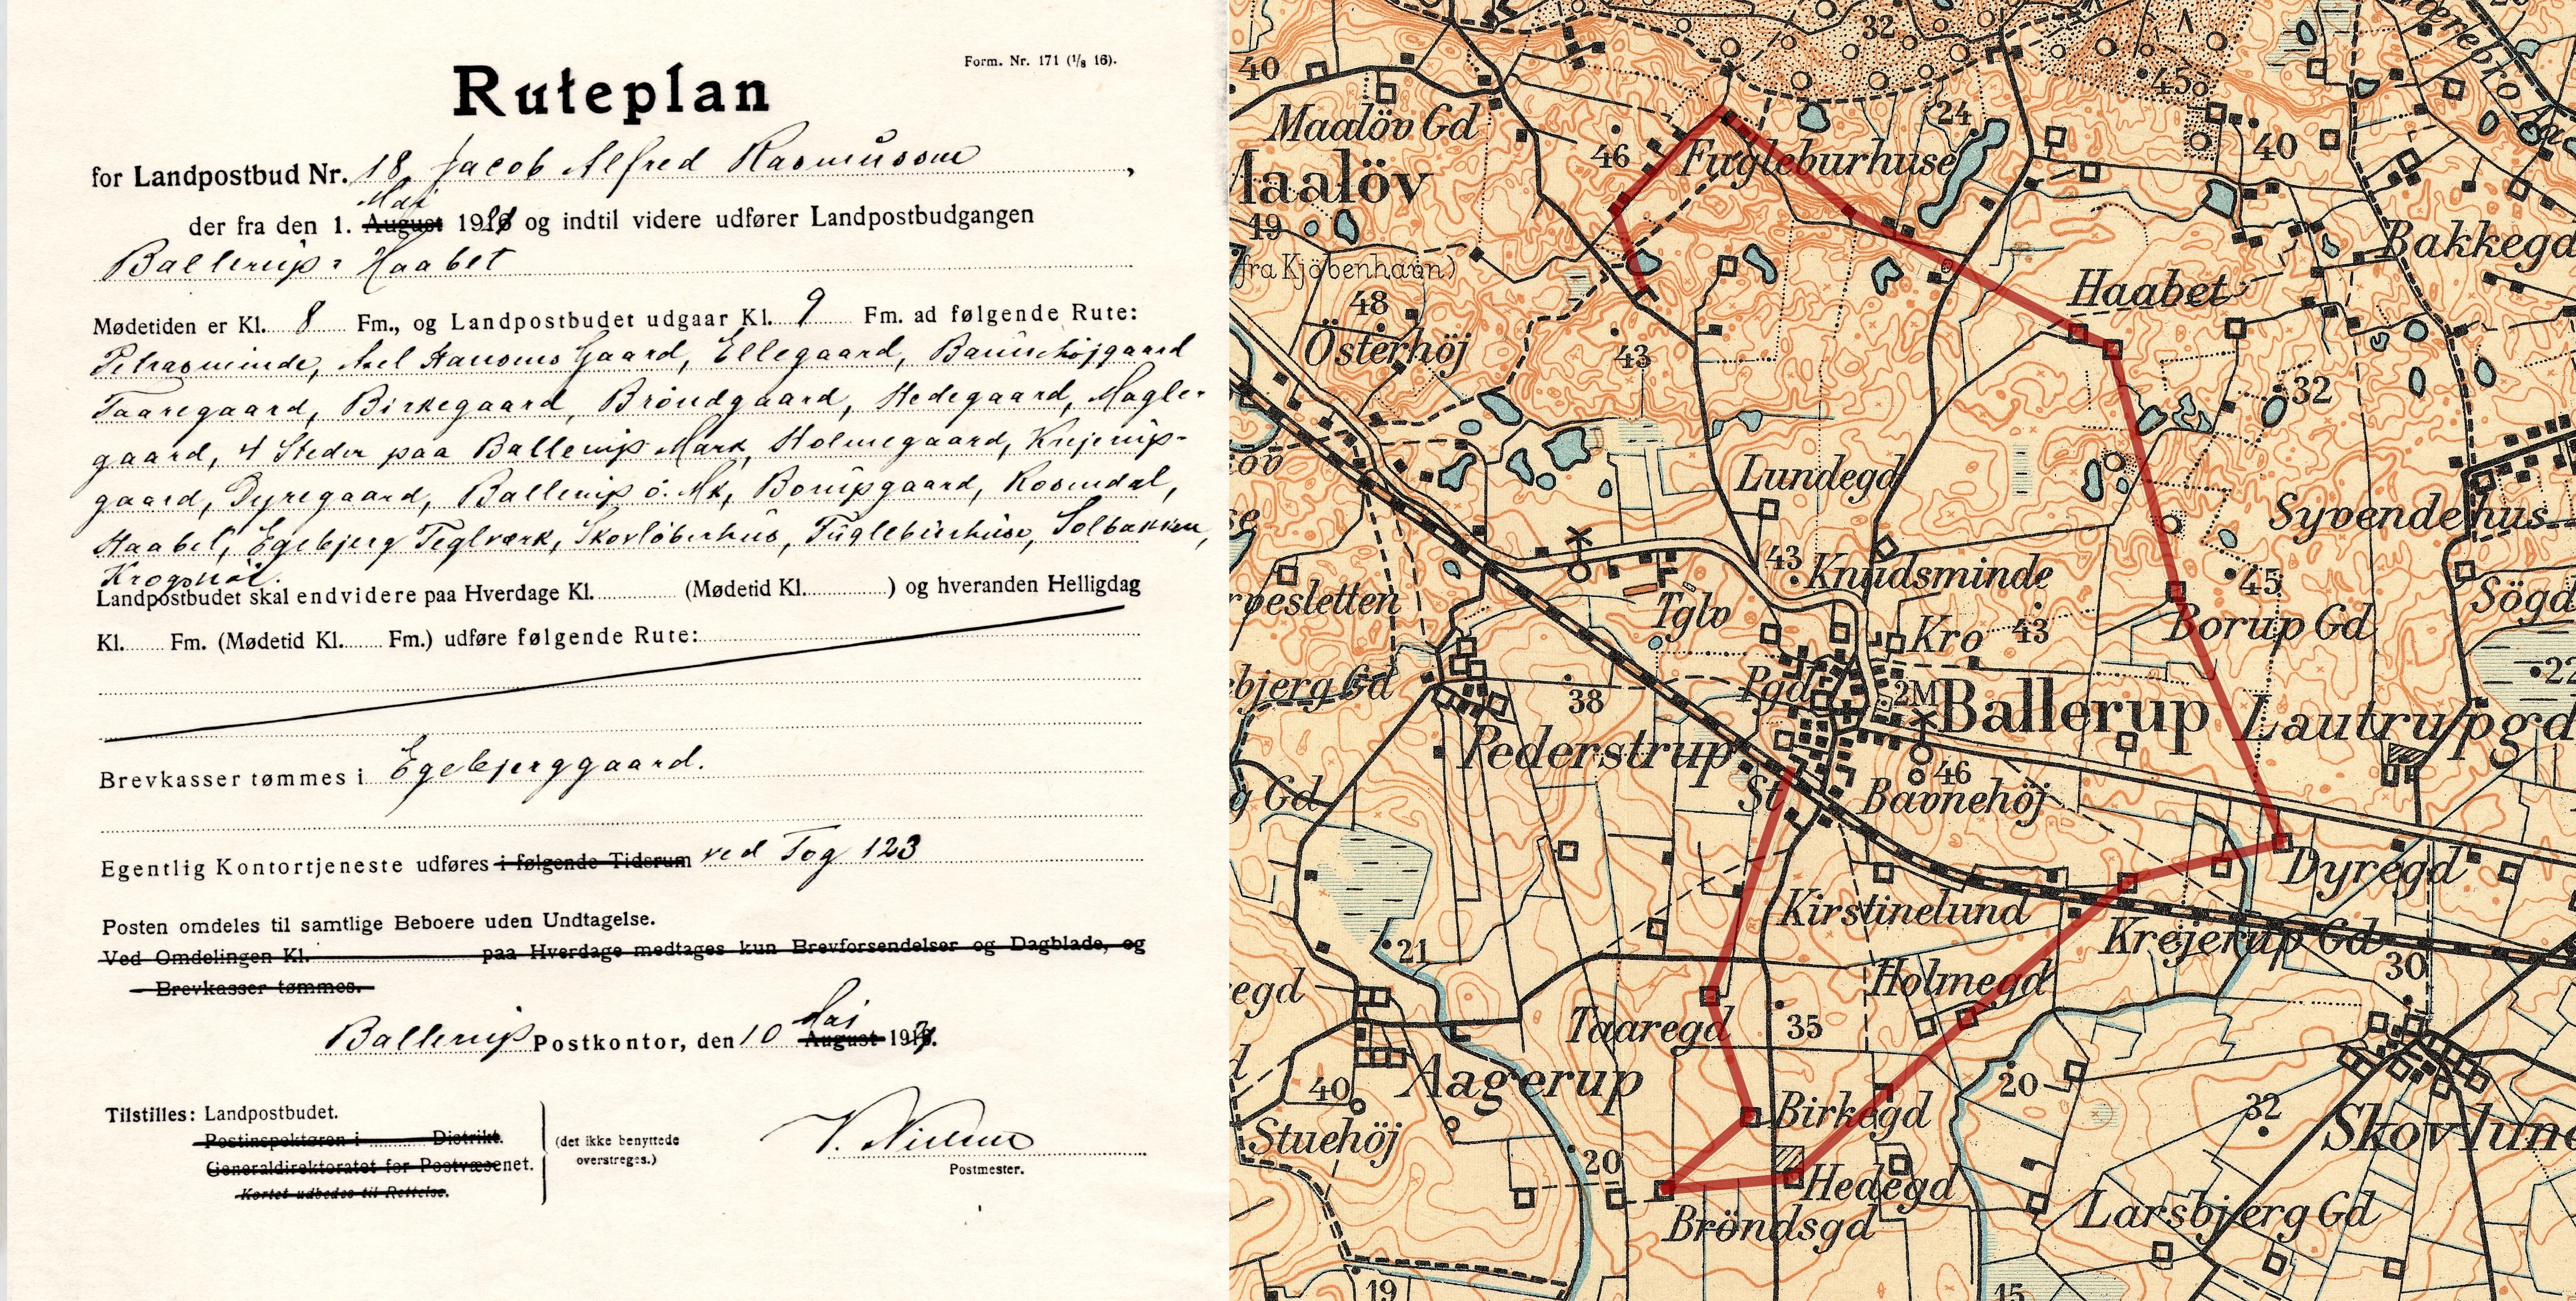 Form. Nr. 171 (1/8 16).
Ruteplan
for Landpostbud Nr. 18, Jacob Alfred Rasmussen,
Maj
der fra den 1. August 1918 og indtil videre udfører Landpostbudgangen
Ballerup: Haabet
Mødetiden er Kl. 8 Fm., og Landpostbudet udgaar Kl. 9 Fm. ad følgende Rute:
Petrasminde, Axel Hansens Gaard, Ellegaard, Baunehøjgaard
Taaregaard, Birkegaard, Bröndgaard, Hedegaard, Magle-
gaard, 4 Steder paa Ballerup Mark, Holmegaard, Krejerup-
gaard, Dyregaard, Ballerup ö. Mk, Borupgaard, Rosendal,
Haabet, Egebjerg Teglværk, Skovlöberhus, Fugleburhuse, Solbakken,
Krogshöi.
Landpostbudet skal endvidere paa Hverdage Kl. (Mødetid Kl. ) og hveranden Helligdag
Kl. Fm. (Mødetid Kl. Fm.) udføre følgende Rute:
Brevkasser tømmes i Egebjerggaard.
Egentlig Kontortjeneste udføres i følgende Tidsrum ved Tog 123
Posten omdeles til samtlige Beboere uden Undtagelse.
Ved Omdelingen Kl. paa Hverdage medtages kun Brevforsendelser og Dagblade, og
Brevkasser tømmes.
Maj
Ballerup Postkontor, den 10 August 191
Tilstilles: Landpostbudet.
Postinspektøren i Distrikt.
Generaldirektoratet for Postvæsenet.
Kortet udbedes til Rettelse.
(det ikke benyttede
overstreges.)
V. Nielsen
Postmester.
32
40
45
Maalöv Gd
24
46
Fugleburhuse
40
Maalöv
19
Bakkegd
(fra Kjöbenhavn)
Haabet
48
Österhöj
43
32
Lundegd
Syvendehus
43
Knudsminde
45
Tglv
Kro
43
Borup Gd
Sögd
ebjerg Gd
38
Pgd
2M
Ballerup
Lautrupgd
22
Pederstrup
St
46
Bavnehöj
g Gd
Dyregd
Kirstinelund
21
Krejerup Gd
30
egd
Holmegd
Taaregd
35
Aagerup
40
20
Birkegd
32
Stuehöj
Skovlund
20
Hedegd
Bröndsgd
Larsbjerg Gd
19
15